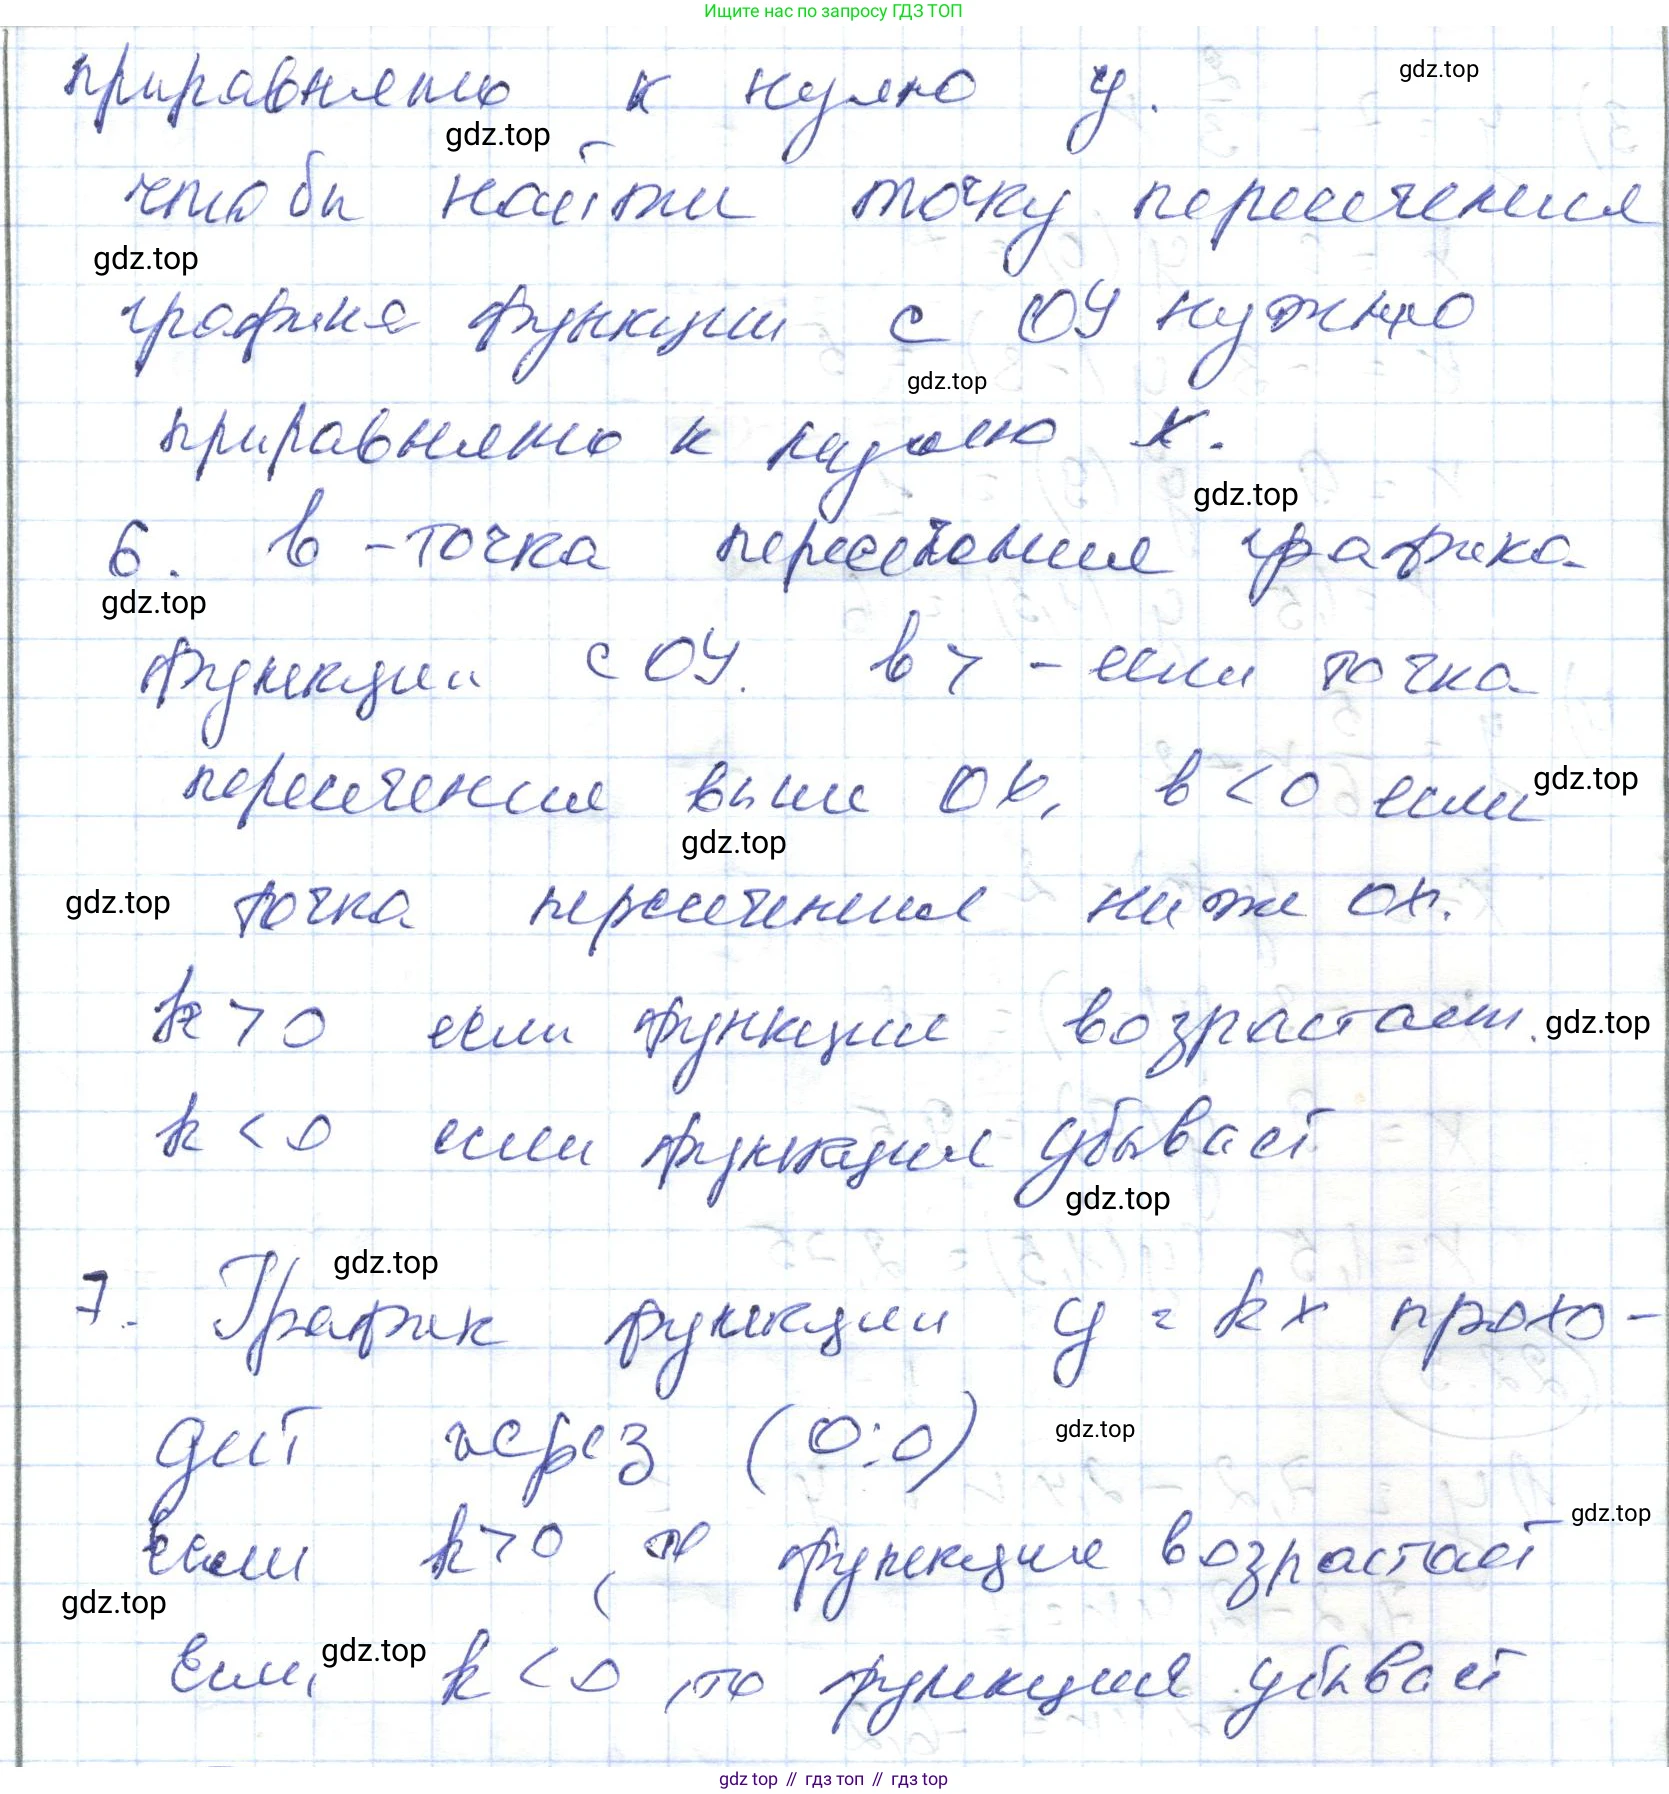 Ищите нас по запросу ГДЗ ТОП
приравнять к нулю у.
gdz.top
gdz.top
чтобы найти точку пересечения
gdz.top
графика функции с ОУ нужно
gdz.top
приравнять к нулю х.
gdz.top
6. в - точка пересечения графика
gdz.top
функции с ОУ. в > - если точка
пересечения выше ОХ, в < 0 если
gdz.top
gdz.top
gdz.top
точка пересечения ниже ОХ.
k > 0 если функция возрастает.
gdz.top
k < 0 если функция убывает
gdz.top
gdz.top
7. График функции y = kx прохо-
дит через (0:0)
gdz.top
gdz.top
если k > 0, то функция возрастает
gdz.top
Если k < 0, то функция убывает
gdz.top
gdz top // гдз топ // гдз top